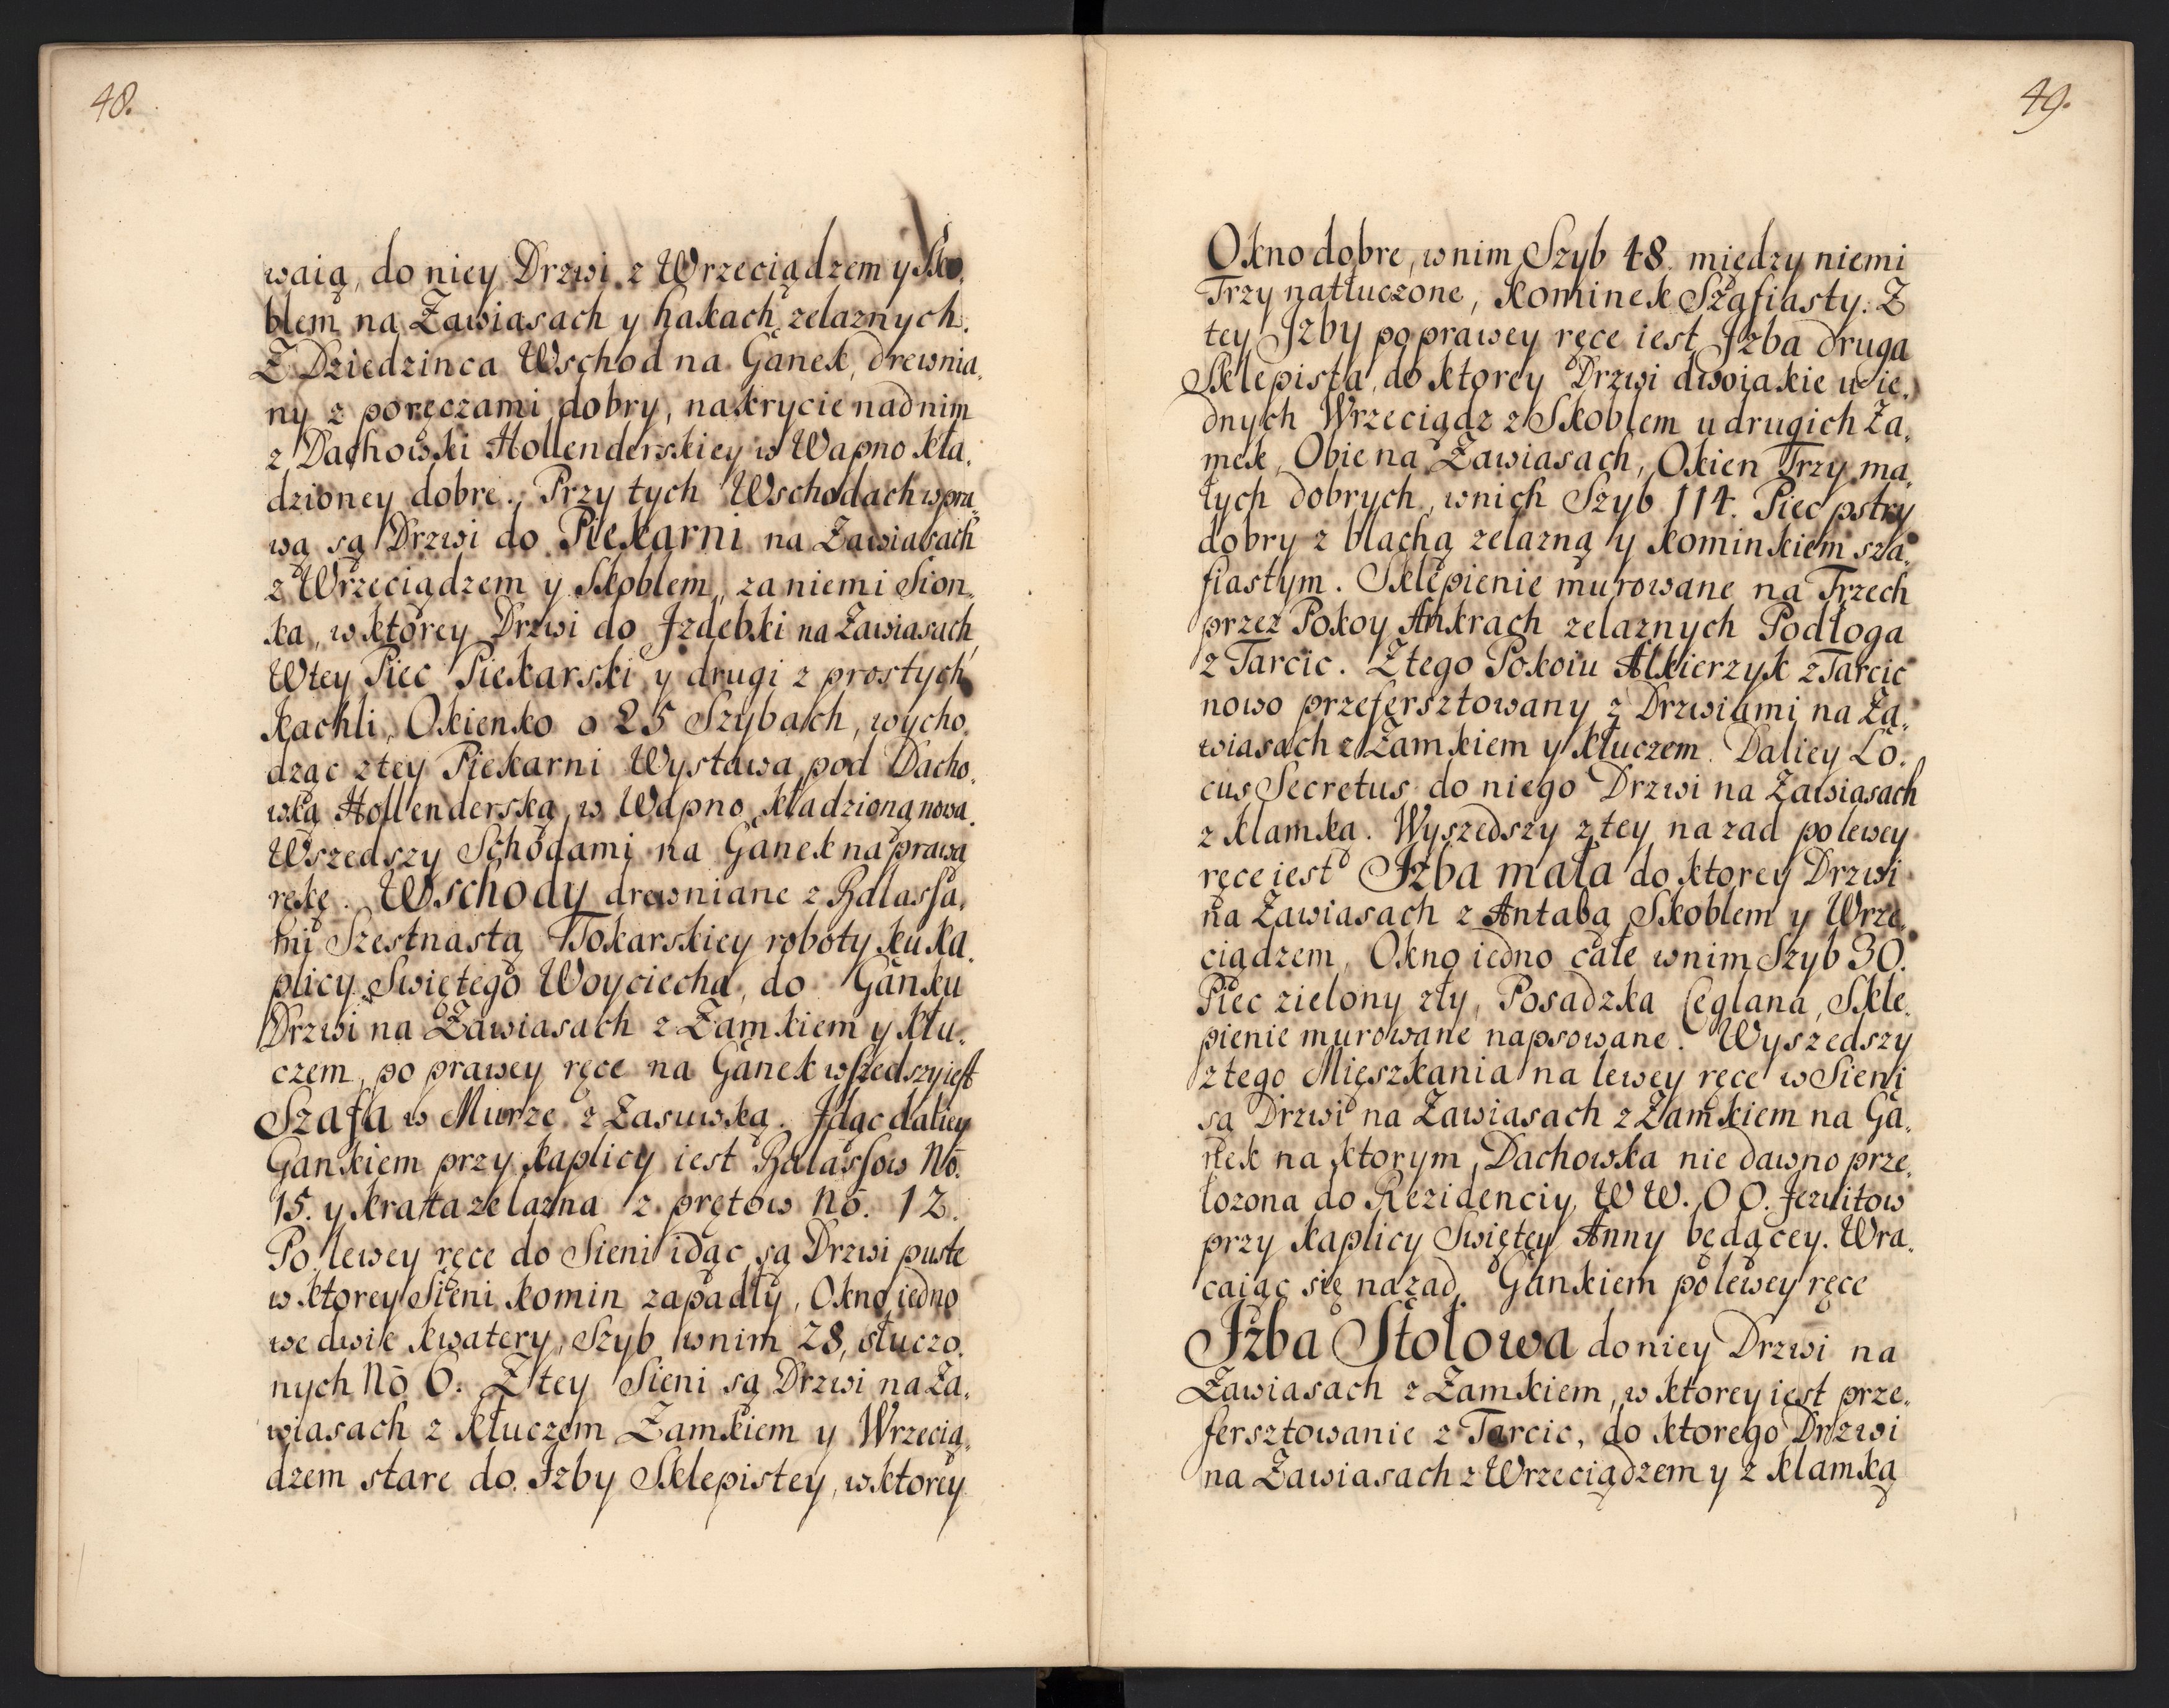 48.
waią, do niey Drzwi z Wrzeciądzem y Sko,
blem na Zawiasach y hakach zelaznych.
Z Dziedzinca Wschod na Ganek, drewnia,
ny z poręczami dobry, nakrycie nad nim
z Dachowki Hollenderskiey w Wapno kła,
dzioney dobre. Przy tych Wschodach w pra,
wą są Drzwi do Piekarni na Zawiasach
z Wrzeciądzem y Skoblem, za niemi Sion,
ka, w ktorey Drzwi do Jzdebki na Zawiasach,
W tey Piec Piekarski y drugi z prostych
kachli, Okienko o 25 Szybach, wycho,
dząc z tey Piekarni Wystawa pod Dacho,
wką Hollenderską w Wapno kładzioną nowa.
Wszedszy Schodami na Ganek na prawą
rękę. Wschody drewniane z Balassa,
mi Szestnastą Tokarskiey roboty ku Ka,
plicy Swiętego Woyciecha, do Ganku
Drzwi na Zawiasach z Zamkiem y klu,
czem, po prawey ręce na Ganek wszedszy iest
Szafa w Murze z Zasuwką. Jdąc daliey
Gankiem przy Kaplicy iest Balassow No.
15. y krata zelazna z prętow No. 12.
Po lewey ręce do Sieni idąc są Drzwi puste
w ktorey Sieni komin zapadły, Okno iedno
we dwie kwatery, Szyb w nim 28, stłuczo,
nych No 6. Z tey Sieni są Drzwi na Za,
wiasach z kluczem Zamkiem y Wrzecią,
dzem stare do Jzby Sklepistey, w ktorey
49.
Okno dobre, w nim Szyb 48. między niemi
Trzy natłuczone, kominek Szafiasty. Z
tey Jzby po prawey ręce iest Jzba druga
Sklepista, do ktorey Drzwi dwoiakie u ie,
dnych Wrzeciądz z Skoblem u drugich Za,
mek, Obie na Zawiasach, Okien Trzy ma,
łych dobrych, w nich Szyb 114. Piec pstry
dobry z blachą zelazną y kominkiem sza,
fiastym. Sklepienie murowane na Trzech
przez Pokoy Ankrach zelaznych Podłoga
z Tarcic. Z tego Pokoiu Alkierzyk z Tarcic
nowo przefersztowany z Drzwiami na Za,
wiasach z Zamkiem y kluczem. Daliey Lo,
cus Secretus do niego Drzwi na Zawiasach
z klamka. Wyszedszy z tey na zad po lewey
ręce iest Jzba mała do ktorey Drzwi
na Zawiasach z Antabą Skoblem y Wrze,
ciądzem, Okno iedno całe w nim Szyb 30.
Piec zielony zły, Posadzka Ceglana, Skle,
pienie murowane napsowane. Wyszedszy
z tego Mięszkania na lewey ręce w Sieni
są Drzwi na Zawiasach z Zamkiem na Ga,
nek na ktorym Dachowka nie dawno prze,
łozona do Rezidenciy W W. O O. Jezuitow
przy Kaplicy Swiętey Anny będącey. Wra,
caiąc się nazad Gankiem po lewey ręce
Jzba Stolowa do niey Drzwi na
Zawiasach z Zamkiem, w ktorey iest prze,
fersztowanie z Tarcic, do ktorego Drzwi
na Zawiasach z Wrzeciądzem y z klamką